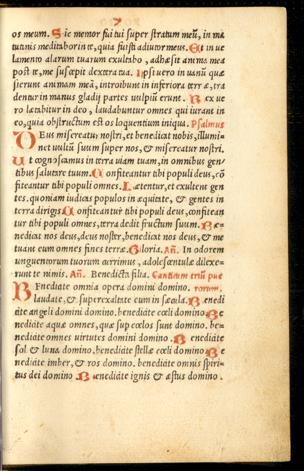 7
os meum. Sic memor fui tui super stratum meũ, in ma
tutinis meditabor in te, quia fuisti adiutor meus. Et in ve
lamento alarum tuarum exultabo, adhæsit anima mea
post te, me suscepit dextera tua. Ipsi vero in vanũ quæ
sierunt animam meã, introibunt in inferiora terræ, tra
dentur in manus gladij partes vulpiũ erunt. Rex ve
ro lætabitur in deo, laudabuntur omnes qui iurant in
eo, quia obstructum est os loquentium iniqua. Psalmus
DEus misereatur nostri, et benedicat nobis, illumi
net vultũ suum super nos, & misereatur nostri.
Ut cognoscamus in terra viam tuam, in omnibus gen
tibus salutare tuum. Confiteantur tibi populi deus, cõ
fiteantur tibi populi omnes. Lætentur, et exultent gen
tes, quoniam iudicas populos in æquitate, & gentes in
terra dirigis. Confiteantur tibi populi deus, confitean
tur tibi populi omnes, terra dedit fructum suum. Be
nedicat nos deus, deus noster, benedicat nos deus, & me
tuant eum omnes fines terræ. Gloria. Añ. In odorem
unguentorum tuorum currimus, adolescentulæ dilexe
runt te nimis. Añ. Benedicta filia. Canticum triũ pue
BEnedicite omnia opera domini domino. rorum.
laudate, & superexaltate eum in sæcula. Benedi
cite angeli domini domino, benedicite cœli domino. Be
nedicite aquæ omnes, quæ sup cœlos sunt domino, be
nedicite omnes virtutes domini domino. Benedicite
sol & luna domino, benedicite stellæ cœli domino. Be
nedicite imber, & ros domino, benedicite omnis spiri
tus dei domino. Benedicite ignis & æstus domino.